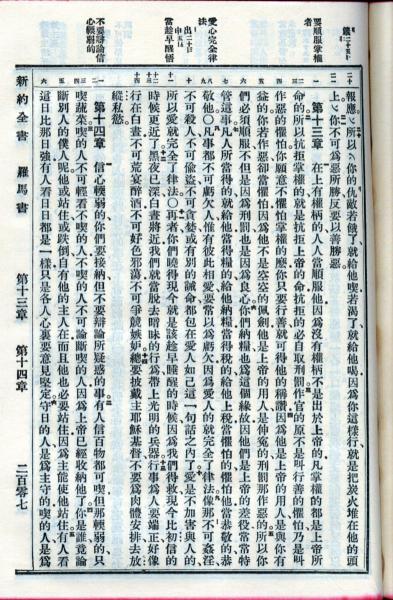 報應〻所以〻你的仇敵若餓了就給他喝因爲你這樣行就是把炭火堆在他的頭
上〻你不可爲惡所勝反要以善勝惡
第十三章 在上有權柄的人人人當順服他因爲沒有權柄不是出於上帝的凡掌權的都是上帝所
命的所以抗拒掌權的就是抗拒上帝的命抗拒的必自取刑罰作官的原不是叫行善的懼怕乃是叫
作惡的懼怕你願意不懼怕掌權的麼你只要行善就可得他的稱讚因爲他是上帝的用人是與你有
益的你若作惡却當懼怕因爲他不是空空的佩劍他是上帝的用人是伸冤的刑罰那作惡的所以你
們必須順服不但是因爲刑罰也是因爲良心你們納糧也爲這個緣故因他們是上帝的差役常常特
管這事凡人所當得的就給他當得糧的給他納糧當得稅的給他上稅當懼怕的懼怕他當恭敬的恭
敬他〇凡事都不可虧欠人惟有彼此相愛要常以爲虧欠因爲愛人的就完全了律法像那不可姦淫
不可殺人不可偷盜不可貪婪或有別的誡命都包在愛人如己這一句話之內了愛是不加害與人的
所以愛就完全了律法〇再者你們曉得現今就是該趁早睡醒的時候因爲我們得救現今比初信的
時候更近了黑夜已深白晝將近我們就當脫去暗昧的行爲帶上光明的兵器行事爲人要端正好像
行在白晝不可荒宴醉酒不可好色邪蕩不可爭競嫉妒總要披戴主耶穌基督不要爲肉體安排去放
縱私慾
第十四章 信心輭弱的你們要接納但不要辯論所疑惑的事有人信百物都可喫但那輭弱的只
喫蔬菜喫的人不可輕看不喫的人不喫的人不可論斷喫的人因爲上帝已經收納他了你是誰竟論
斷別人的僕人呢他或站住或跌倒自有他的主人在而且他也必要站住因爲主能使他站住有人看
這日比那日強有人看日日都是一樣只是各人心裏要意見堅定守日的人是爲主守的喫的人是爲
要順服掌權者
愛心完全律法
當趁早醒悟
不要辯論信心輭弱的
新約全書 羅馬書 第十三章 第十四章 二百零七